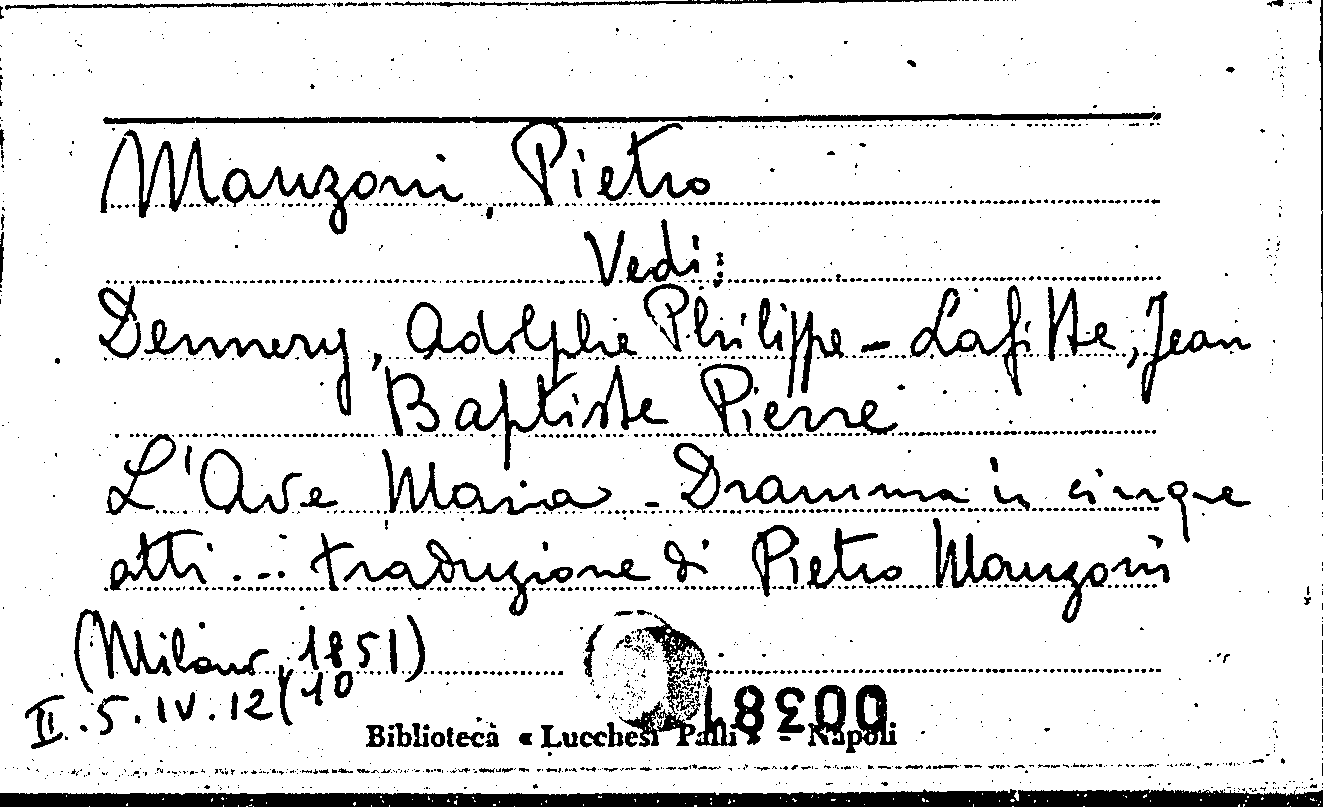 Manzoni, Pietro
Vedi:
Dennery, Adolphe Philippe - Lafitte, Jean
Baptiste Pierre
L'Ave Maria - Dramma in cinque
atti... traduzione di Pietro Manzoni
(Milano, 1851)
II.5.IV.12(10
00381
Biblioteca « Lucchesi Palli » - Napoli